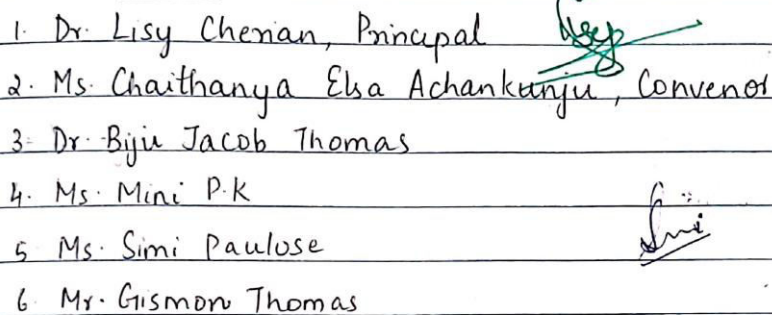 1. Dr. Lisy Cherian, Principal
2. Ms. Chaithanya Elsa Achankunju, Convenor
3. Dr. Biju Jacob Thomas
4. Ms. Mini P.K
5 Ms. Simi Paulose
6. Mr. Gismon Thomas